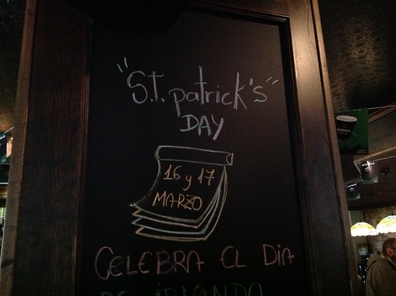 "S.T. patrick's"
DAY
16 y 17
MARZO
CELEBRA EL DIA
DE IRLANDA